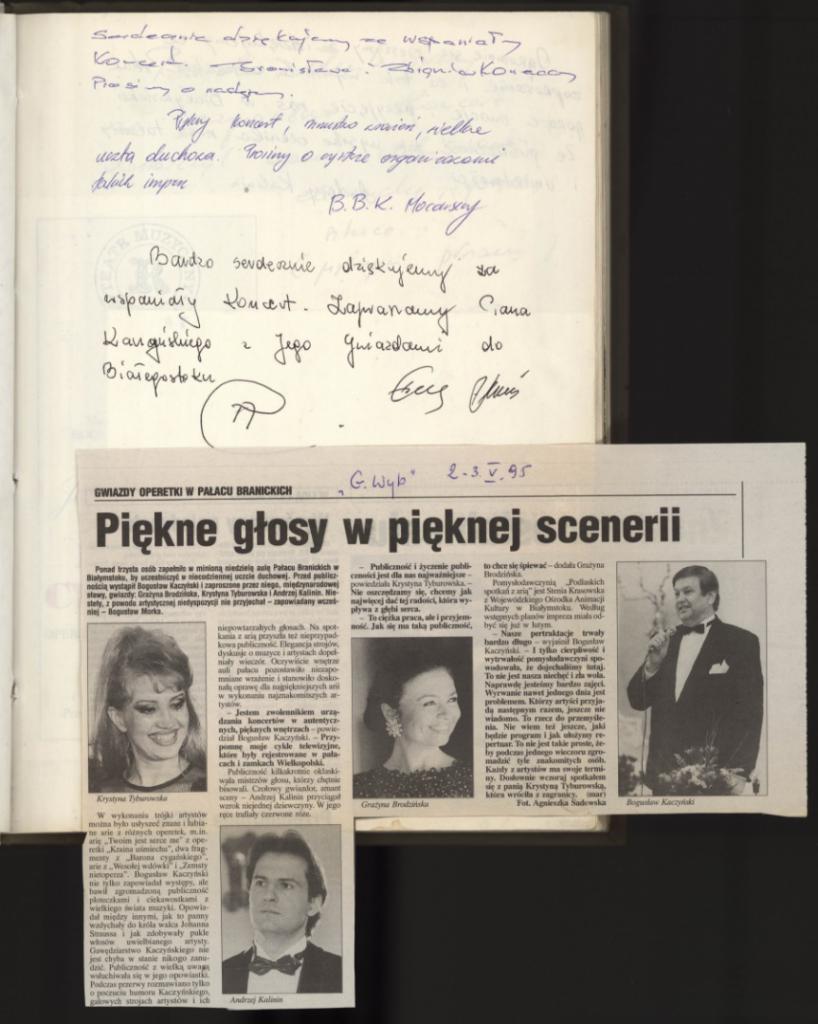 Serdecznie dziękujemy za wspaniały
Koncert. Stanisława i Zbigniew
Prosimy o
Piękny koncert, wielka
uczta duchowa. Prosimy o
takich imprez
B.B.K.
Bardzo serdecznie dziękujemy za
wspaniały Koncert. Zapraszamy Pana
Kaczyńskiego z Jego Gwiazdami do
Białegostoku
TEATR MUZYCZNY
„G. Wyb" 2-3.V.95
GWIAZDY OPERETKI W PAŁACU BRANICKICH
Piękne głosy w pięknej scenerii
Ponad trzysta osób zapełniło w minioną niedzielę aulę Pałacu Branickich w
Białymstoku, by uczestniczyć w niecodziennej uczcie duchowej. Przed publicz-
nością wystąpił Bogusław Kaczyński i zaproszone przez niego, międzynarodowej
sławy, gwiazdy: Grażyna Brodzińska, Krystyna Tyburowska i Andrzej Kalinin. Nie-
stety, z powodu artystycznej niedyspozycji nie przyjechał – zapowiadany wcześ-
niej – Bogusław Morka.
Krystyna Tyburowska
W wykonaniu trójki artystów
można było usłyszeć znane i lubia-
ne arie z różnych operetek, m.in.
arię „Twoim jest serce me" z ope-
retki „Kraina uśmiechu", dwa frag-
menty z „Barona cygańskiego",
arie z „Wesołej wdówki" i „Zemsty
nietoperza". Bogusław Kaczyński
nie tylko zapowiadał występy, ale
bawił zgromadzoną publiczność
ploteczkami i ciekawostkami z
wielkiego świata muzyki. Opowia-
dał między innymi, jak to panny
wzdychały do króla walca Johanna
Straussa i jak zdobywały pukle
włosów uwielbianego artysty.
Gawędziarstwo Kaczyńskiego nie
jest chyba w stanie nikogo zanu-
dzić. Publiczność z wielką uwagą
wsłuchiwała się w jego opowiastki.
Podczas przerwy rozmawiano tylko
o poczuciu humoru Kaczyńskiego,
galowych strojach artystów i ich
niepowtarzalnych głosach. Na spot-
kania z arią przyszła też nieprzypad-
kowa publiczność. Elegancja strojów,
dyskusje o muzyce i artystach dopeł-
niały wieczór. Oczywiście wnętrze
auli pałacu pozostawiło niezapo-
mniane wrażenie i stanowiło dosko-
nałą oprawę dla najpiękniejszych arii
w wykonaniu najznakomitszych ar-
tystów.
– Jestem zwolennikiem urzą-
dzania koncertów w autentycz-
nych, pięknych wnętrzach – powie-
dział Bogusław Kaczyński. – Przy-
pomnę moje cykle telewizyjne,
które były rejestrowane w pała-
cach i zamkach Wielkopolski.
Publiczność kilkakrotnie oklaski-
wała mistrzów głosu, którzy chętnie
bisowali. Czołowy gwiazdor, amant
sceny – Andrzej Kalinin przyciągał
wzrok niejednej dziewczyny. W jego
ręce trafiały czerwone róże.
Andrzej Kalinin
– Publiczność i życzenie publi-
czności jest dla nas najważniejsze –
powiedziała Krystyna Tyburowska. –
Nie oszczędzamy się, chcemy jak
najwięcej dać tej radości, która wy-
pływa z głębi serca.
– To ciężka praca, ale i przyjem-
ność. Jak się ma taką publiczność,
Grażyna Brodzińska
to chce się śpiewać – dodała Grażyna
Brodzińska.
Pomysłodawczynią „Podlaskich
spotkań z arią" jest Stenia Krasowska
z Wojewódzkiego Ośrodka Animacji
Kultury w Białymstoku. Według
wstępnych planów impreza miała od-
być się już w lutym.
– Nasze pertraktacje trwały
bardzo długo – wyjaśnił Bogusław
Kaczyński. – I tylko cierpliwość i
wytrwałość pomysłodawczyni spo-
wodowała, że dojechaliśmy tutaj.
To nie jest nasza niechęć i zła wola.
Naprawdę jesteśmy bardzo zajęci.
Wyrwanie nawet jednego dnia jest
problemem. Którzy artyści przyja-
dą następnym razem, jeszcze nie
wiadomo. To rzecz do przemyśle-
nia. Nie wiem też jeszcze, jaki
będzie program i jak ułożymy re-
pertuar. To nie jest takie proste, że-
by podczas jednego wieczoru zgro-
madzić tyle znakomitych osób.
Każdy z artystów ma swoje termi-
ny. Dosłownie wczoraj spotkałem
się z panią Krystyną Tyburowską,
która wróciła z zagranicy. (mar)
Fot. Agnieszka Sadowska
Bogusław Kaczyński